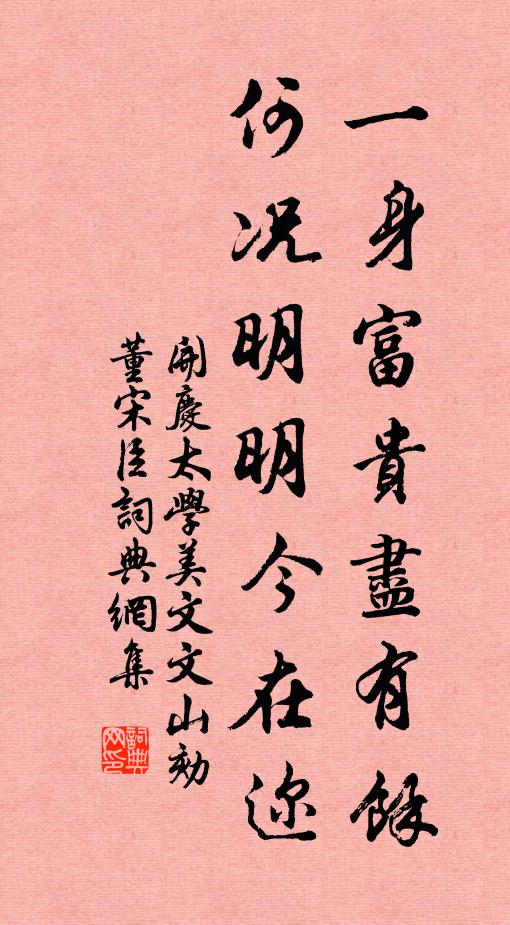 一身富貴盡有餘
何况明明今在迩
開慶太學美文文山劾
董宋臣詞典網集
詞典网印